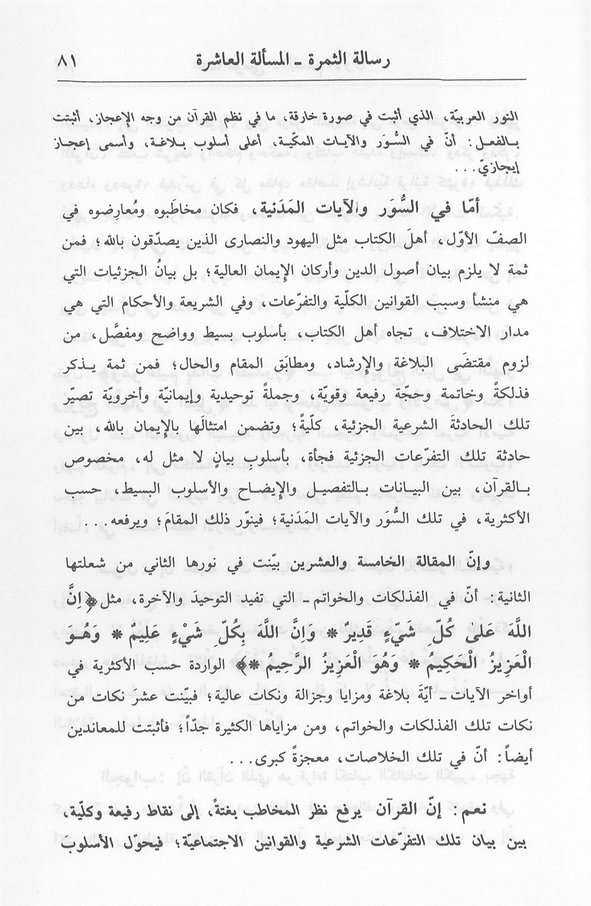 رسالة الثمرة ـ المسألة العاشرة ٨١
النور العربيّة، الذي أثبت في صورة خارقة، ما في نظم القرآن من وجه الإعجاز، أثبتت
بالفعل: أنّ في السُّوَر والآيات المكّية، أعلى أسلوب بلاغة، وأسمى إعجاز
إيجازيّ...
أمّا في السُّوَر والآيات المَدَنية، فكان مخاطَبوه ومُعارِضوه في
الصفّ الأوّل، أهلَ الكتاب مثل اليهود والنصارى الذين يصدّقون بالله؛ فمن
ثمة لا يلزم بيان أصول الدين وأركان الإيمان العالية؛ بل بيانُ الجزئيات التي
هي منشأ وسبب القوانين الكلّية والتفرّعات، وفي الشريعة والأحكام التي هي
مدار الاختلاف، تجاه أهل الكتاب، بأسلوب بسيط وواضح ومفصَّل، من
لزوم مقتضَى البلاغة والإرشاد، ومطابَق المقام والحال؛ فمن ثمة يـذكر
فذلكةً وخاتمة وحجّة رفيعة وقويّة، وجملةً توحيدية وإيمانيّة وأخرويّة تصيّر
تلك الحادثةَ الشرعية الجزئية، كلّيةً؛ وتضمن امتثالَها بالإيمان بالله، بين
حادثة تلك التفرّعات الجزئية فجأة، بأسلوبِ بيانٍ لا مثل له، مخصوص
بالقرآن، بين البيانات بالتفصيل والإيضاح والأسلوب البسيط، حسب
الأكثرية، في تلك السُّوَر والآيات المَدَنية؛ فينوّر ذلك المقامَ؛ ويرفعه...
وإنّ المقالة الخامسة والعشرين بيّنت في نورها الثاني من شعلتها
الثانية: أنّ في الفذلكات والخواتم ـ التي تفيد التوحيدَ والآخرة، مثل ﴿إنَّ
اللَّهَ عَلىٰ كُلِّ شَيْءٍ قَدِيرٌ * وَإنَّ اللَّهَ بِكُلِّ شَيْءٍ عَلِيمٌ * وَهُـوَ
الْعَزِيزُ الْحَكِيمُ * وَهُوَ الْعَزِيزُ الرَّحِيمُ *﴾ الواردة حسب الأكثرية في
أواخر الآيات ـ أيّةَ بلاغة ومزايا وجزالة ونكات عالية؛ فبيّنت عشرَ نكات من
نكات تلك الفذلكات والخواتم، ومن مزاياها الكثيرة جدّاً؛ فأثبتت للمعاندين
أيضاً: أنّ في تلك الخلاصات، معجزةً كبرى...
نعم: إنّ القرآن يرفع نظر المخاطب بغتةً، إلى نقاط رفيعة وكلّية،
بين بيان تلك التفرّعات الشرعية والقوانين الاجتماعيّة؛ فيحوّل الأسلوبَ